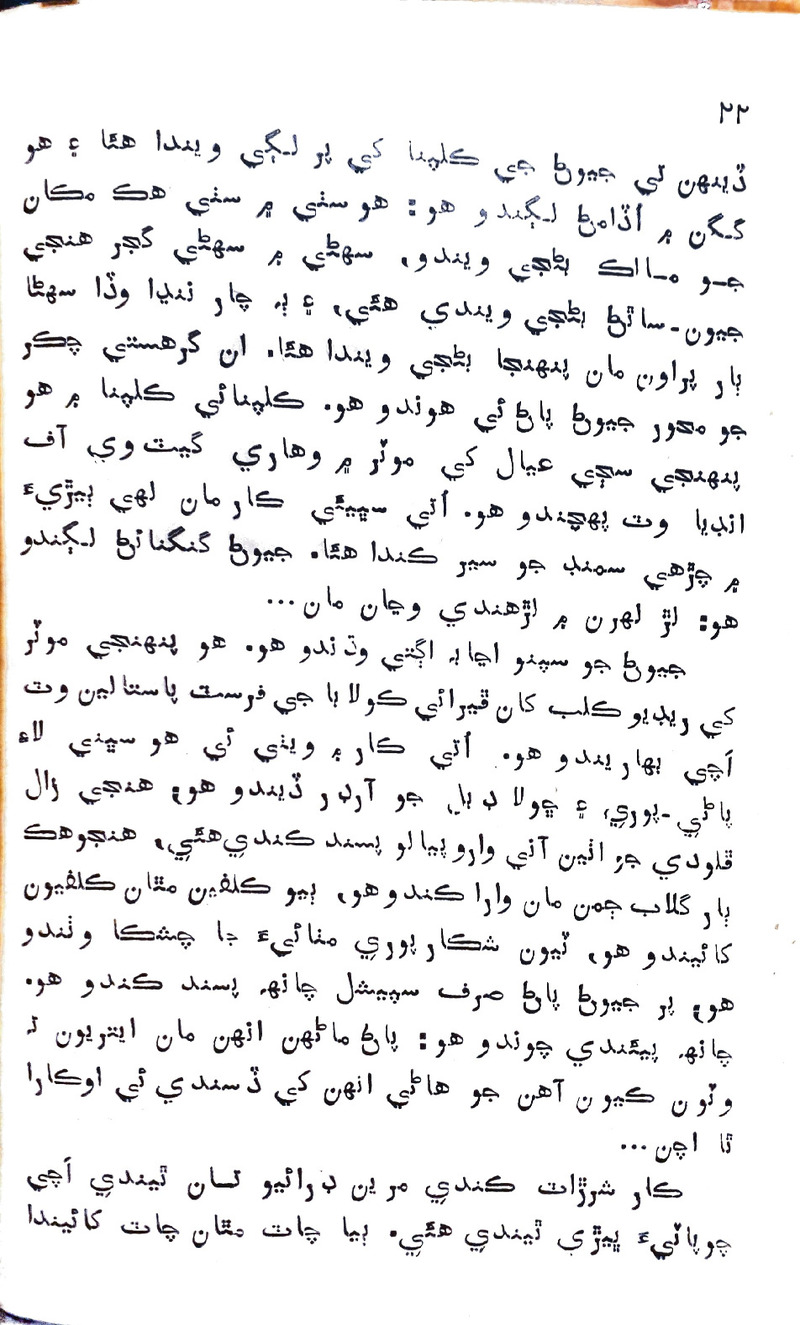 ۲۲
ڏينهن ئي جيوڻ جي ڪلپنا کي پر لڳي ويندا هئا ۽ هو
گگن ۾ اُڏامڻ لڳندو هو: هو سٺي ۾ سٺي هڪ مڪان
جو مالڪ بڻجي ويندو، سهڻي ۾ سهڻي گجر هنجي
جيون-ساٿڻ بڻجي ويندي هئي، ۽ ٻه چار ننڍا وڏا سهڻا
ٻار پراون مان پنهنجا بڻجي ويندا هئا. ان گرهستي چڪر
جو محور جيوڻ پاڻ ئي هوندو هو. ڪلپنائي ڪلپنا ۾ هو
پنهنجي سڄي عيال کي موٽر ۾ وهاري گيٽ وي آف
انڊيا وٽ پهچندو هو. اُتي سڀيئي ڪار مان لهي ٻيڙيءَ
۾ چڙهي سمنڊ جو سير ڪندا هئا. جيوڻ گنگنائڻ لڳندو
هو: لڙ لهرن ۾ لڙهندي وڃان مان...
جيوڻ جو سپنو اڃا به اڳتي وڌندو هو. هو پنهنجي موٽر
کي ريڊيو ڪلب کان ڦيرائي ڪولابا جي فرسٽ پاستا لين وٽ
اَچي بهاريندو هو. اُتي ڪار ۾ ويٺي ئي هو سڀني لاءِ
پاڻي-پوري، ۽ ڇولا ڊبل جو آرڊر ڏيندو هو؛ هنجي زال
ڦلودي جر اٺين آني وارو پيالو پسند ڪندي هئي، هنجو هڪ
ٻار گلاب ڄمن مان وارا ڪندو هو، ٻيو ڪلفين مٿان ڪلفيون
کائيندو هو، ٽيون شڪارپوري مٺائيءَ جا چشڪا وٺندو
هو؛ پر جيوڻ پاڻ صرف سپيشل چانهه پسند ڪندو هو.
چانهه پيئندي چوندو هو: پاڻ ماڻهن انهن مان ايتريون ته
وٽون ڪيون آهن جو هاڻي انهن کي ڏسندي ئي اوڪارا
ٿا اچن...
ڪار شرڙاٽ ڪندي مرين ڊرائيو تان ٿيندي اَچي
چوپاٽيءَ ڀيڙي ٿيندي هئي. ٻيا چاٽ مٿان چاٽ کائيندا